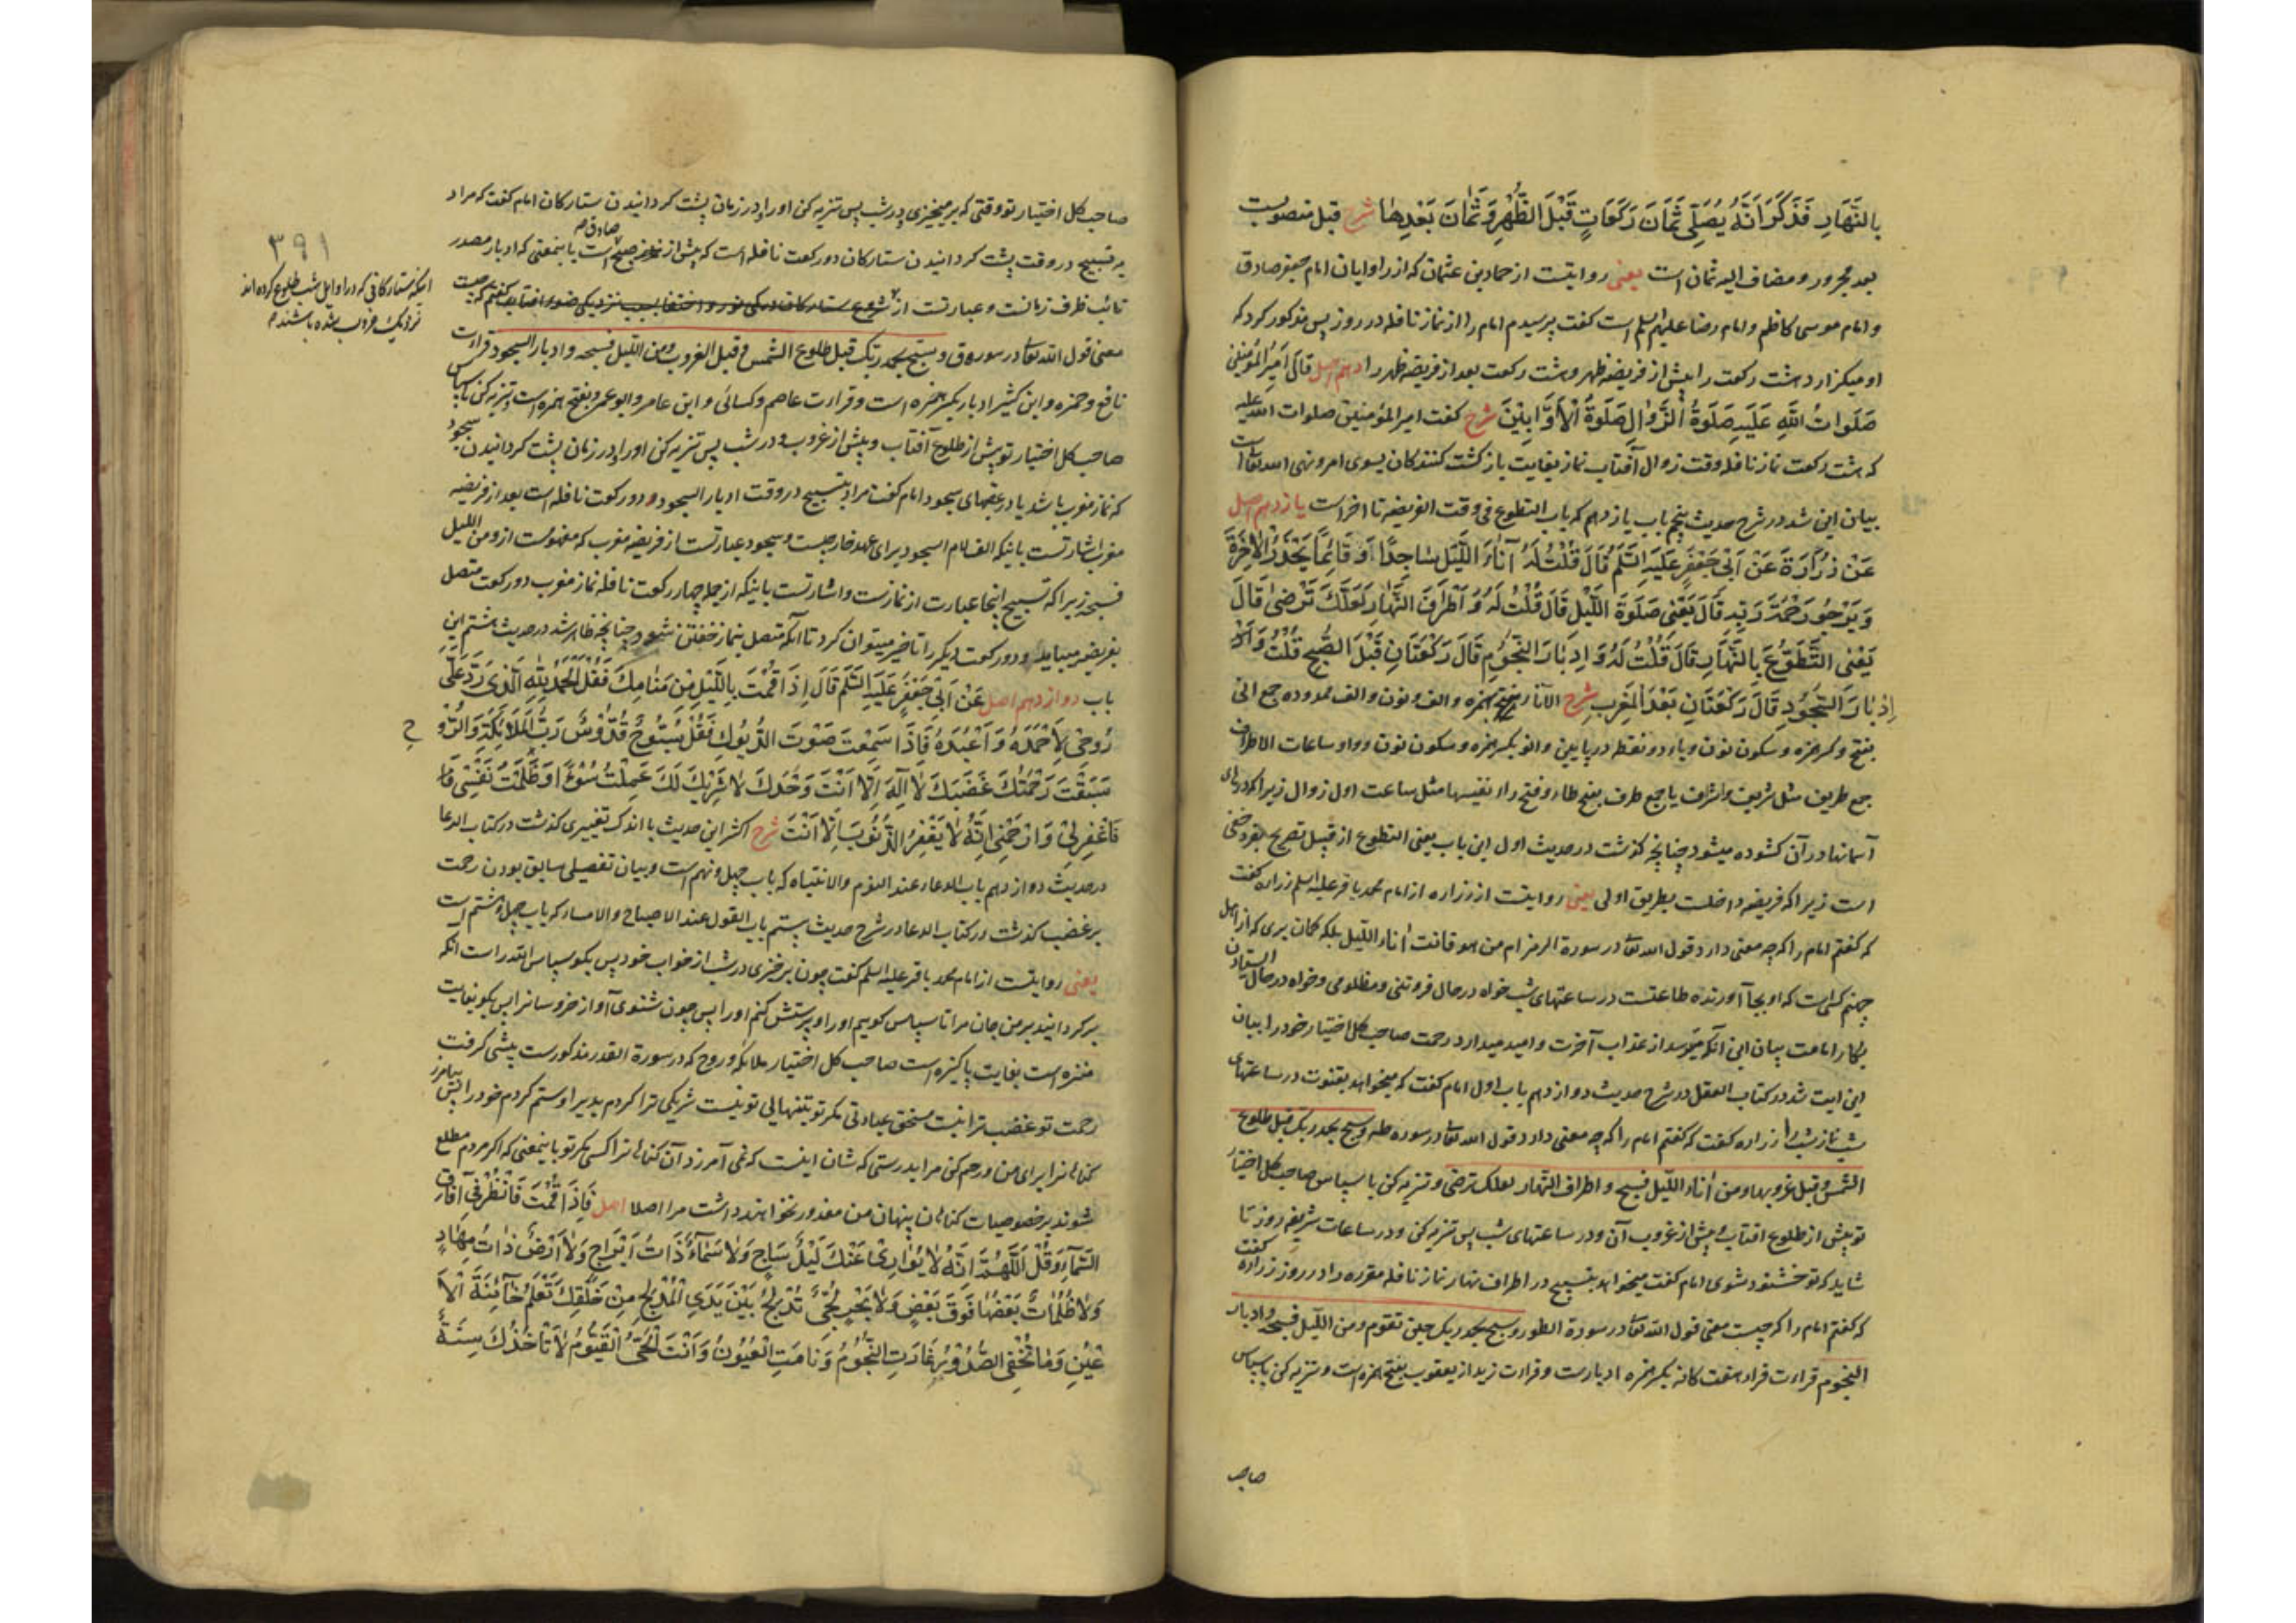 بِالنَّهَارِ فَذَكَرَ اَنَّهُ يُصَلِّى ثَمَانَ رَكَعَاتٍ قَبْلَ الظُّهْرِ وَ ثَمَانَ بَعْدِهَا شرح قبل منصوبست
بعد مجرور و مضاف اليه ثمان است يعنى روايتست از حماد بن عثمان كه از راويان امام جعفر صادق
و امام موسى كاظم و امام رضا عليهم السلم است كفت پرسيدم امام را از نماز نافله در روز پس مذكور كرد كه
او ميكزارد هشت ركعت را پيش از فريضه ظهر و هشت ركعت بعد از فريضه ظهر را دهم اصل قَالَ اَمِيرُ الْمُؤْمِنِينَ
صَلَوَاتُ اللَّهِ عَلَيهِ صَلَوةُ الزَّوَالِ صَلَوةُ الْاَوَّابِينَ شرح كفت امير المؤمنين صلوات الله عليه
كه هشت ركعت نماز نافله وقت زوال آفتاب نماز بغايت باز كشت كنندكان بسوى امر و نهى الله تعالى است
بيان اين شد در شرح حديث پنجم باب يازدهم كه باب التطوع فى وقت الفريضه تا اخر است يازدهم اصل
عَنْ زُرَارَةَ عَنْ اَبِى جَعْفَرٍ عَلَيهِ السَّلم قَالَ قُلْتُ لَهُ آنَاءَ اللَّيْلِ سَاجِدًا وَ قَائِمًا يَحْذَرُ الْاخِرَةَ
وَ يَرْجُو رَحْمَةَ رَبِّهِ قَالَ يَعْنِى صَلَوةَ اللَّيْلِ قَالَ قُلْتُ لَهُ وَ اَطْرَافَ النَّهَارِ لَعَلَّكَ تَرْضىٰ قَالَ
يَعْنِى التَّطَوُّعَ بِالنَّهَارِ قَالَ قُلْتُ لَهُ وَ اِدْبَارَ النُّجُومِ قَالَ رَكْعَتَانِ قَبْلَ الصُّبْحِ قُلْتُ وَ اَدْ
اِدْبَارَ السُّجُودِ قَالَ رَكْعَتَانِ بَعْدَ الْمَغْرِبِ شرح الآناء بفتح همزه و الف و نون و الف ممدوده جمع انى
بفتح و كسر همزه و سكون نون و ياء دو نقطه در پايين و انو بكسر همزه و سكون نون و واو ساعات الاطراف
جمع طريف مثل شريف و اشراف يا جمع طرف بفتح طاء و فتح راء نفيسها مثل ساعت اول زوال زيرا كه درهاى
آسمانها در آن كشوده ميشود چنانچه كذشت در حديث اول اين باب يعنى التطوع از قبيل تصريح بفرد خفى
است زيرا كه فريضه داخلست بطريق اولى يعنى روايتست از زراره از امام محمد باقر عليه السلم زراره كفت
كه كفتم امام را كه چه معنى دارد قول الله تعالى در سورة الزمر ام من هو قانت أناء الليل بلكه كمان برى كه از اهل
جهنم كه است كه او بجا آورنده طاعتست در ساعتهاى شب خواه در حال فروتنى و مظلومى و خواه در حال ايستادن
بكار امامت بيان اين آنكه ميترسد از عذاب آخرت و اميد ميدارد رحمت صاحب كل اختيار خود را بيان
اين ايت شد در كتاب العقل در شرح حديث دوازدهم باب اول امام كفت كه ميخواهد بقنوت در ساعتهاى
شب نماز شب را زراره كفت كه كفتم امام را كه چه معنى دارد قول الله تعالى در سوره طه و سبح بحمد ربك قبل طلوع
الشمس و قبل غروبها و من أناء الليل فسبح و اطراف النهار لعلك ترضى و تنزيه كن با سپاس صاحب كل اختيار
تو پيش از طلوع افتاب و پيش از غروب آن و در ساعتهاى شب پس تنزيه كن و در ساعات شريفه روز تا
شايد كه تو خشنود شوى امام كفت ميخواهد بتسبيح در اطراف نهار نماز نافله مقرره را در روز زراره كفت
كه كفتم امام را كه چيست معنى قول الله تعالى در سورة الطور و سبح بحمد ربك حين تقوم و من الليل فسبحه و ادبار
النجوم قراءت قراء هفت كانه بكسر همزه ادبارست و قراءت زيد از يعقوب بفتح همزه است و تنزيه كن با سپاس
صاحب
صاحب كل اختيار تو وقتى كه بر ميخيزى و در شب پس تنزيه كن او را و در زمان پشت كردانيدن ستاركان امام كفت كه مراد
صادق ص
به تسبيح در وقت پشت كردانيدن ستاركان دو ركعت نافله است كه پيش از نماز صبح است باينمعنى كه ادبار مصدر
نائب ظرف زمانست و عبارتست از شروع ستاركان در كى نور و اختفا بسبب نزديكى ضوء افتاب كفتم كه چيست
معنى قول الله تعالى در سوره ق و سبح بحمد ربك قبل طلوع الشمس و قبل الغروب و من الليل فسبحه و ادبار السجود قراءت
نافع و حمزه و ابن كثير ادبار بكسر همزه است و قراءت عاصم و كسائى و ابن عامر و ابو عمرو بفتح همزه است و تنزيه كن با سپاس
صاحب كل اختيار تو پيش از طلوع آفتاب و پيش از غروب و در شب پس تنزيه كن او را و در زمان پشت كردانيدن سجود
كه نماز مغرب باشد يا در عقبهاى سجود امام كفت مراد بتسبيح در وقت ادبار السجود دو ركعت نافله است بعد از فريضه
مغرب اشارتست باينكه الف لام السجود براى عهد خارجيست و سجود عبارتست از فريضه مغرب كه مفهومست از و من الليل
فسبحه زيرا كه تسبيح اينجا عبارت از نمازست و اشارتست باينكه از جمله چهار ركعت نافله نماز مغرب دو ركعت متصل
بفريضه ميبايد و دو ركعت ديكر را تاخير ميتوان كرد تا آنكه متصل بنماز خفتن شود چنانچه ظاهر شد در حديث هشتم اين
باب دوازدهم اصل عَنْ اَبِى جَعْفَرٍ عَلَيهِ السَّلم قَالَ اِذَا قُمْتَ بِاللَّيْلِ مِنْ مَنَامِكَ فَقُلْ الْحَمْدُ لِلَّهِ الَّذِى رَدَّ عَلَىَّ
رُوحِى لِاَحْمَدَهُ وَ اَعْبُدَهُ فَاِذَا سَمِعْتَ صَوْتَ الدُّيُوكِ فَقُلْ سُبُّوحٌ قُدُّوسٌ رَبُّ الْمَلَائِكَةِ وَ الرُّو ح
سَبَقَتْ رَحْمَتُكَ غَضَبَكَ لَا اِلٰهَ اِلَّا اَنْتَ وَحْدَكَ لَا شَرِيكَ لَكَ عَمِلْتُ سُوْءًا وَ ظَلَمْتُ نَفْسِى فَا
فَاغْفِرْلِى وَ ارْحَمْنِى اِنَّهُ لَا يَغْفِرُ الذُّنُوبَ اِلَّا اَنْتَ شرح اكثر اين حديث با اندك تغييرى كذشت در كتاب الدعا
در حديث دوازدهم باب الدعاء عند النوم و الانتباه كه باب چهل و نهم است و بيان تفصيلى سابق بودن رحمت
بر غضب كذشت در كتاب الدعا در شرح حديث بيستم باب القول عند الاصباح و الامساء كه باب چهل و هشتم است
يعنى روايتست از امام محمد باقر عليه السلم كفت چون بر خيزى در شب از خواب خود پس بكو سپاس الله راست انكه
بر كردانيد بر من جان مرا تا سپاس كويم او را و پرستش كنم او را پس چون شنوى آواز خروسانرا پس بكو بغايت
منزه است بغايت پاكيزه است صاحب كل اختيار ملائكه و روح كه در سورة القدر مذكورست پيشى كرفت
رحمت تو غضب ترا نيست مستحق عبادتى مكر تو بتنهائى تو نيست شريكى ترا كردم بدى را و ستم كردم خود را پس بيامرز
كناهانرا براى من و رحم كن مرا بدرستى كه شان اينست كه نمى آمرزد آن كناهانرا كسى مكر تو باينمعنى كه اكر مردم مطلع
شوند بر خصوصيات كناهان پنهان من معذور نخواهند داشت مرا اصلا اصل فَاِذَا قُمْتَ فَانْظُرْ فِى آفَاقِ
السَّمَاءِ وَ قُلْ اَللَّهُمَّ اِنَّهُ لَا يُوَارِى عَنْكَ لَيْلٌ سَاجٍ وَ لَا سَمَاءٌ ذَاتُ اَبْرَاجٍ وَ لَا اَرْضٌ ذَاتُ مِهَادٍ
وَ لَا ظُلُمَاتٌ بَعْضُهَا فَوْقَ بَعْضٍ وَ لَا بَحْرٌ لُجِّىٌّ تُدْلِجُ بَيْنَ يَدَىِ الْمُدْلِجِ مِنْ خَلْقِكَ تَعْلَمُ خَائِنَةَ الْاَ
عْيُنِ وَ مَا تُخْفِى الصُّدُورُ غَارَتِ النُّجُومُ وَ نَامَتِ الْعُيُونُ وَ اَنْتَ الْحَىُّ الْقَيُّومُ لَا تَاْخُذُكَ سِنَةٌ
٣٩١
اينكه ستاركانى كه در اوايل شب طلوع كرده اند
نزديك غروب شده باشند